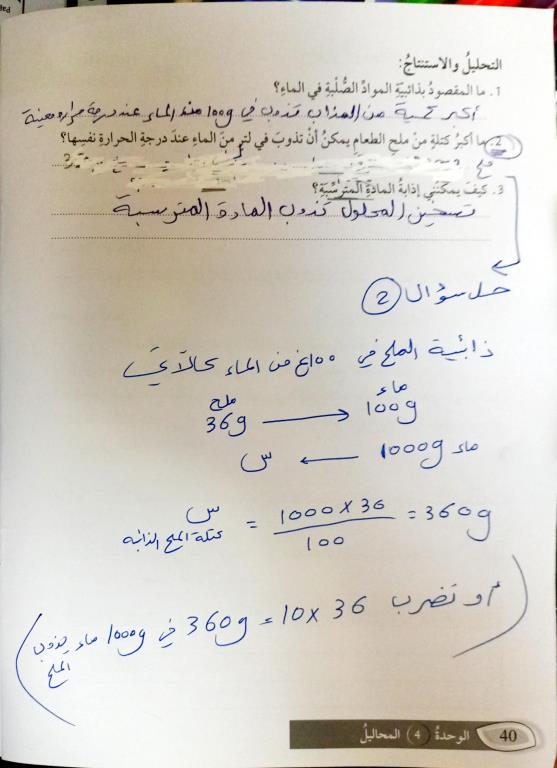 التحليلُ والاستنتاجُ:
1. ما المقصودُ بذائبيّةِ الموادِّ الصُّلبةِ في الماءِ؟
أكبر كمية من المذاب تذوب في 100g من الماء عند درجة حرارة معينة
2. ما أكبرُ كتلةٍ منْ ملحِ الطعامِ يمكنُ أنْ تذوبَ في لترٍ منَ الماءِ عندَ درجةِ الحرارةِ نفسِها؟
3. كيفَ يمكنُني إذابةُ المادةِ المترسّبةِ؟
تسخين المحلول تذوب المادة المترسبة
حل سؤال 2
ذائبية الملح في 100غ من الماء كالآتي
ملح ماء
36g 100g
ماء 1000g س
س = 1000 X 36 / 100 = 360g
كتلة الملح الذائبة
(أو نضرب 36 x 10 = 360g في 1000g ماء يذوب الملح)
40 الوحدةُ 4 المحاليلُ